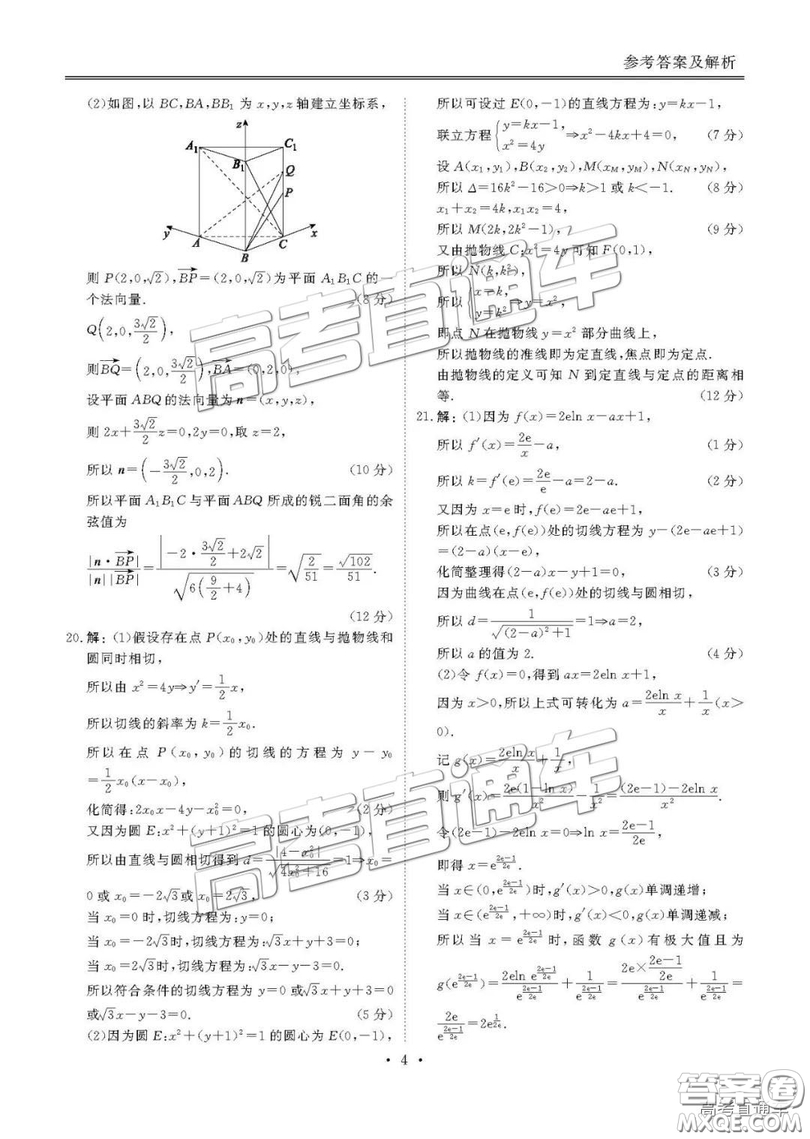 参考答案及解析
(2)如图,以 BC,BA,BB₁ 为 x,y,z 轴建立坐标系,
z
A₁
C₁
B₁
Q
P
y
A
B
C
x
则 P(2,0,√2),BP→=(2,0,√2)为平面 A₁B₁C 的一
个法向量. (8分)
Q(2,0,3√2/2),
则BQ→=(2,0,3√2/2),BA→=(0,2,0),
设平面 ABQ 的法向量为 n=(x,y,z),
则 2x+3√2/2 z=0,2y=0,取 z=2,
所以 n=(-3√2/2,0,2). (10分)
所以平面 A₁B₁C 与平面 ABQ 所成的锐二面角的余
弦值为
|n·BP→|/|n||BP→|=|-2·3√2/2+2√2|/√(6(9/2+4))=√(2/51)=√102/51.
(12分)
20.解:(1)假设存在点 P(x₀,y₀)处的直线与抛物线和
圆同时相切,
所以由 x²=4y⇒y′=1/2 x,
所以切线的斜率为 k=1/2 x₀.
所以在点 P(x₀,y₀)的切线的方程为 y-y₀
=1/2 x₀(x-x₀),
化简得:2x₀x-4y-x₀²=0, (2分)
又因为圆 E:x²+(y+1)²=1 的圆心为(0,-1),
所以由直线与圆相切得到 d=|4-x₀²|/√(4x₀²+16)=1⇒x₀=
0 或 x₀=-2√3或 x₀=2√3, (3分)
当 x₀=0 时,切线方程为:y=0;
当 x₀=-2√3时,切线方程为:√3x+y+3=0;
当 x₀=2√3时,切线方程为:√3x-y-3=0.
所以符合条件的切线方程为 y=0 或√3x+y+3=0
或√3x-y-3=0. (5分)
(2)因为圆 E:x²+(y+1)²=1 的圆心为 E(0,-1),
所以可设过 E(0,-1)的直线方程为:y=kx-1,
联立方程{y=kx-1, x²=4y ⇒x²-4kx+4=0, (7分)
设 A(x₁,y₁),B(x₂,y₂),M(x_M,y_M),N(x_N,y_N),
所以 Δ=16k²-16>0⇒k>1 或 k<-1. (8分)
x₁+x₂=4k,x₁x₂=4,
所以 M(2k,2k²-1), (9分)
又由抛物线 C:x²=4y 可知 F(0,1),
所以 N(k,k²),
所以{x=k, y=k² ⇒y=x²,
即点 N 在抛物线 y=x² 部分曲线上,
所以抛物线的准线即为定直线,焦点即为定点.
由抛物线的定义可知 N 到定直线与定点的距离相
等. (12分)
21.解:(1)因为 f(x)=2eln x-ax+1,
所以 f′(x)=2e/x-a, (1分)
所以 k=f′(e)=2e/e-a=2-a. (2分)
又因为 x=e 时,f(e)=2e-ae+1,
所以在点(e,f(e))处的切线方程为 y-(2e-ae+1)
=(2-a)(x-e),
化简整理得(2-a)x-y+1=0, (3分)
因为曲线在点(e,f(e))处的切线与圆相切,
所以 d=1/√((2-a)²+1)=1⇒a=2,
所以 a 的值为 2. (4分)
(2)令 f(x)=0,得到 ax=2eln x+1,
因为 x>0,所以上式可转化为 a=2eln x/x+1/x(x>
0).
记 g(x)=2eln x/x+1/x,
则 g′(x)=2e(1-ln x)/x²-1/x²=((2e-1)-2eln x)/x².
令(2e-1)-2eln x=0⇒ln x=(2e-1)/2e,
即得 x=e^((2e-1)/2e).
当 x∈(0,e^((2e-1)/2e))时,g′(x)>0,g(x)单调递增;
当 x∈(e^((2e-1)/2e),+∞)时,g′(x)<0,g(x)单调递减;
所以当 x=e^((2e-1)/2e) 时,函数 g(x)有极大值且为
g(e^((2e-1)/2e))=2eln e^((2e-1)/2e)/e^((2e-1)/2e)+1/e^((2e-1)/2e)=(2e×(2e-1)/2e)/e^((2e-1)/2e)+1/e^((2e-1)/2e)=
2e/e^((2e-1)/2e)=2e^(1/2e).
·4·
高考直通车
高考直通车
答案圈
高考直通车
MXQE.COM